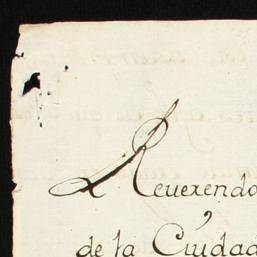 Reuerendo
de la Ciudad